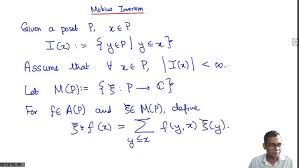 Möbius Inversion
Given a poset P, x ∈ P
I(x) := { y ∈ P | y ≤ x }
Assume that ∀ x ∈ P, |I(x)| < ∞.
Let M(P) := { ξ : P → ℂ }
For f ∈ A(P) and ξ ∈ M(P), define
ξ * f (x) = ∑_{y≤x} f(y,x) ξ(y).